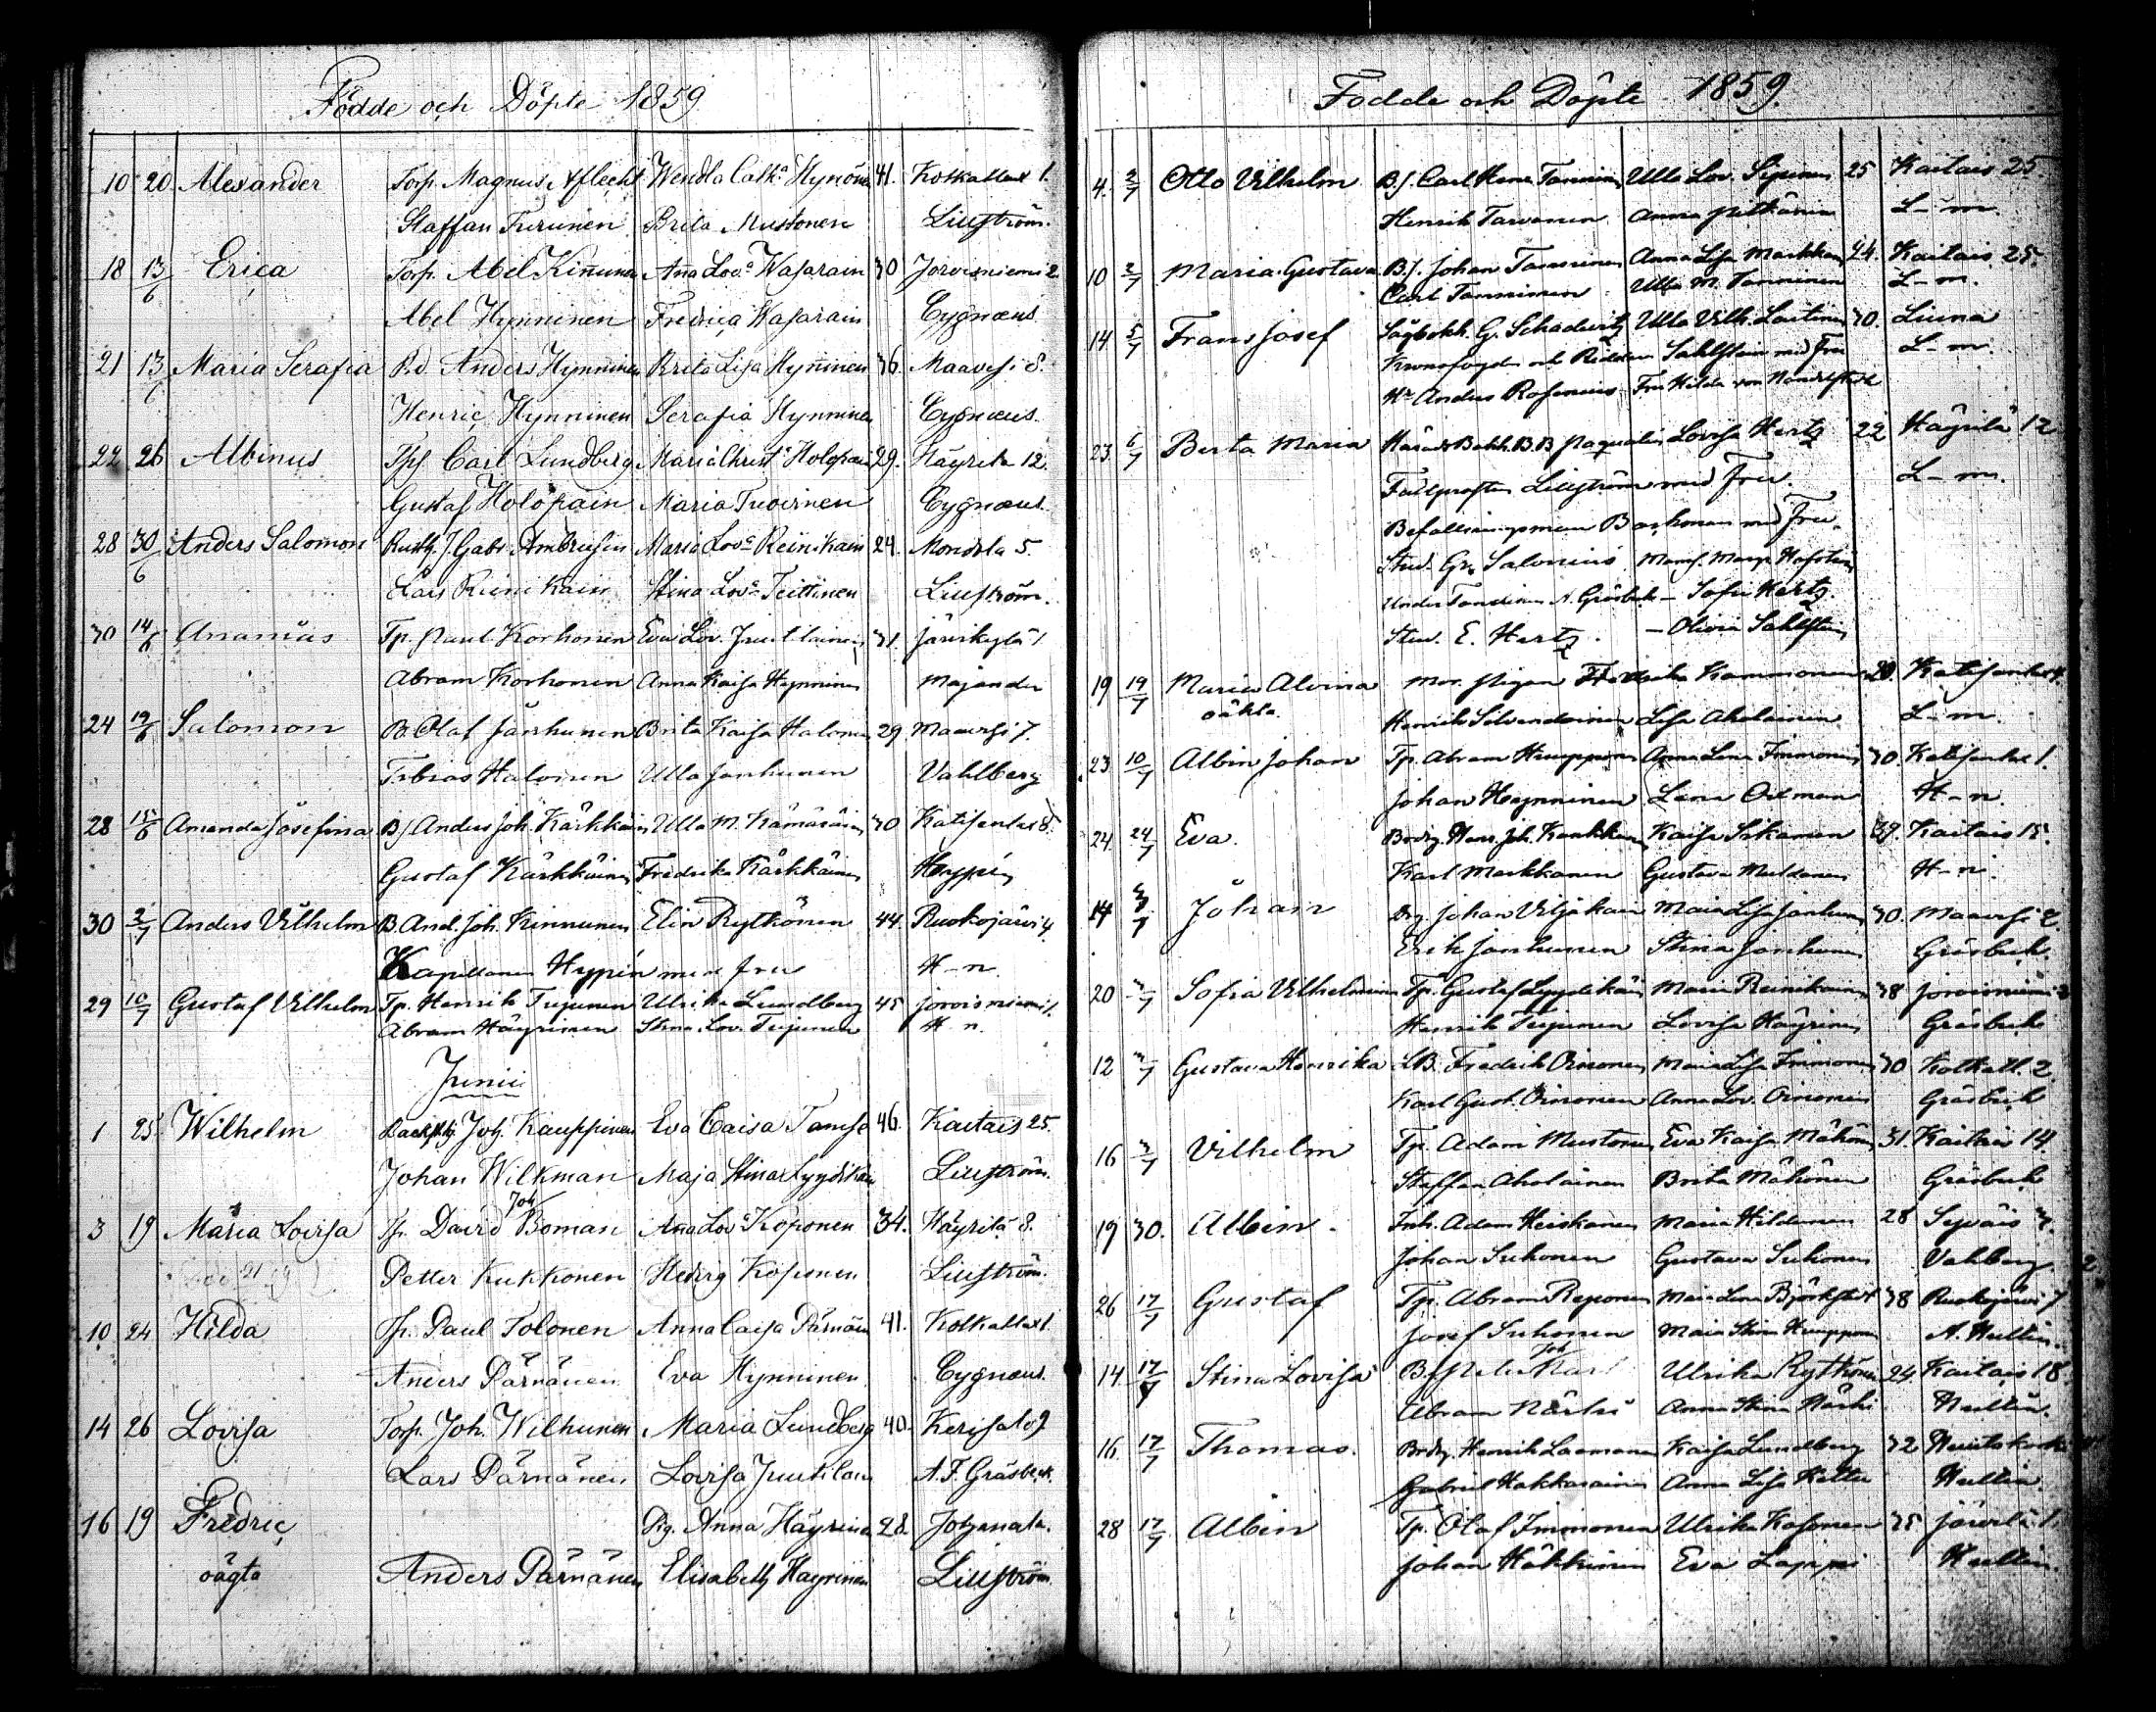 Födde och Döpte 1859
10 20 Alexander Torp. Magnus Aflecht Wendla Cath:a Hynönen 41. Kolkallax 1.
Staffan Turunen Brita Mustonen Liliström.
18 13/6 Erica Torp. Abel Kinnunen Anna Lov:a Wasarain 30 Jorvisniemi 2.
Abel Hynninen Fredrica Wasarain Cygnæus.
21 13/6 Maria Serafia Bd Anders Hynninen Brita Lisa Hynninen 36. Maavesi 8.
Henric Hynninen Serafia Hynninen Cygnæus.
22 26 Albinus Tp. Carl Lundberg Maria Christ:a Holopain 29. Häyrilä 12.
Gustaf Holopain Maria Tuovinen Cygnæus.
28 30/6 Anders Salomon J. Gabr. Ambrusin Maria Lov:a Reinikain 24. Mondola 5.
Lars Reinikain Stina Lov:a Teittinen Liliström.
30 14/6 Ananias Tp. Paul Korhonen Eva Lov. Juutilainen 31. Järvikylä 1
Abram Korhonen Anna Kaisa Hynninen Majander
24 19/6 Salomon B. Olaf Janhunen Brita Kaisa Halonen 29 Maavesi 7.
Tobias Halonen Ulla Janhunen Vahlberg
28 15/6 Amanda Josefina Bf. Anders Joh. Kärkkäinen Ulla M. Kämäräinen 30 Katisenlax 8.
Gustaf Kärkkäinen Fredrika Kärkkäinen Heypén
30 2/7 Anders Vilhelm B. And. Joh. Kinnunen Elin Rytkönen 44. Ruokojärvi 4.
Kapellanen Hypén med fru H-n.
29 10/7 Gustaf Vilhelm Tp. Henrik Tujunen Ulrika Lundberg 45 Jorvisniemi 1.
Abram Häyrinen Stina Lov. Tujunen H-n.
Junii
1 25 Wilhelm Joh. Kauppinen Eva Caisa Tamse 46. Kaitais 25.
Johan Wilkman Maja Stina Lyydikäin Liliström.
3 19 Maria Lovisa Tp. David Joh Boman Anna Lov:a Koponen 34. Häyrilä 8.
Petter Kukkonen Hedvig Koponen Liliström.
10 24 Hilda Tp. Paul Tolonen Anna Caisa Pärnänen 41. Kolkallax 1.
Anders Pärnänen Eva Hynninen Cygnæus.
14 26 Lovisa Torp. Joh. Wilhunen Maria Lundberg 40. Kerisalo 9
Lars Pärnänen Lovisa Juutilain A. F. Gräsbeck.
16 19 Fredric Pig. Anna Häyrinen 28. Johjanala.
oägta Anders Pärnänen Elisabeth Häyrinen Liliström
Födde och Döpte 1859.
4. 2/7 Otto Vilhelm Bf. Carl Henr. Tanninen Ulla Lov. Sipinen 25 Kaitais 25
Henrik Tarvonen Anna Pitkänin L-m.
10 2/7 Maria Gustava Bf. Johan Tanninen Anna Lisa Markkan 44. Kaitais 25.
Carl Tanninen Ulla M. Tanninen L-m.
14 5/7 Frans Josef G. Schadevitz Ulla Vilh. Laitinen 30. Liuna
Kronofogden och Riddaren Sahlstein med Fru L-m.
Hr Anders Rosenius Fru Hilda von
23. 6/7 Berta Maria B. B. Paqualin Lovisa Hertz 22 Häyrilä 12
Liliström med Fru. L-m.
Befallningsman Backman med Fru.
Stud. Gr. Salonius Mams. Marg. Hofstein
A. Gräsbeck - Sofie Hertz.
Stud. E. Hertz. - Olivia Sahlstein
19 19/7 Maria Alvina Fredrika Kammonen 20. Katisenlax 4.
oäkta. Henrik Silvendoinen Lisa Aholainen L-m.
23 10/7 Albin Johan Tp. Abram Huupponen Anna Lena Immonen 30. Katisenlax 1.
Johan Heynninen Lena Oxman H-n.
24. 24/7 Eva. Hans Joh. Kankkun Kaisa Sikanen 39. Kaitais 15.
Karl Markkanen Gustava Muldonen H-n.
14 3/7 Johan Drg. Johan Viljakain Maria Lisa Janhunen 30. Maavesi 2.
Erik Janhunen Stina Janhunen Gräsbeck.
20 3/7 Sofia Vilhelmina Tp. Gustaf Lyydikäin Maria Reinikainen 38 Jorvisniemi 3
Henrik Tujunen Lovisa Häyrinen Gräsbeck
12 3/7 Gustava Henrika LB. Fredrik Oinonen Maria Lisa Immonen 30 Kolkall. 2.
Karl Gust. Oinonen Anna Lov. Oinonen Gräsbeck
16 3/7 Vilhelm Tp. Adam Mustonen Eva Kaisa Mähönen 31. Kaitais 14.
Staffan Aholainen Brita Mähönen Gräsbeck
19 30. Albin. Inh. Adam Heiskanen Maria Hildenen 28 Syväis 7.
Johan Suhonen Gustava Suhonen Vahlberg.
26 17/7 Gustaf Tp. Abram Reponen Maria Lena Björkstedt 38 Ruokojärvi 7
Josef Suhonen Maria Stina Huupponen A. Hullin.
14. 17/7 Stina Lovisa Joh Ulrika Rytkönen 24 Kaitais 18.
Abram Närhi Anna Stina Närhi Hullin.
16. 17/7 Thomas. Henrik Laamanen Kaisa Lundberg 32
Gabriel Hakkarainen Anna Lisa Kettu Hullin.
28 17/7 Albin Tp. Olaf Immonen Ulrika Kosonen 35 Järvelä 1.
Johan Häkkinen Eva Lappi Hullin.